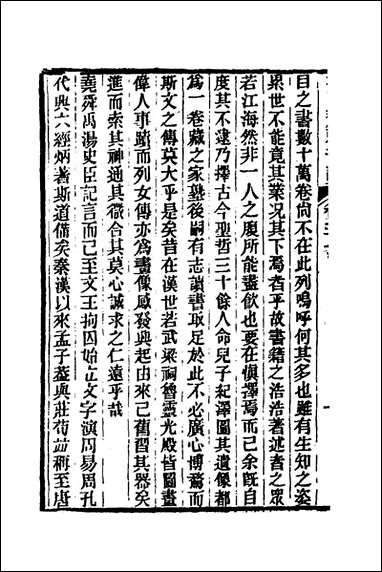 目之書數十萬卷尚不在此列嗚呼何其多也雖有生知之姿
累世不能竟其業况其下焉者乎故書籍之浩浩著述者之眾
若江海然非一人之腹所能盡飲也要在慎擇焉而已余既自
度其不逮乃擇古今聖哲三十餘人命兒子紀澤圖其遺像都
爲一卷藏之家塾後嗣有志讀書取足於此不必廣心博騖而
斯文之傳莫大乎是矣昔在漢世若武梁祠魯靈光殿皆圖畫
偉人事蹟而列女傳亦爲畫像感發興起由來已舊習其器矣
進而索其神通其微合其莫心誠求之仁遠乎哉
堯舜禹湯史臣記言而已至文王拘囚始立文字演周易周孔
代興六經炳著斯道備矣秦漢以來孟子蓋與莊荀並稱至唐